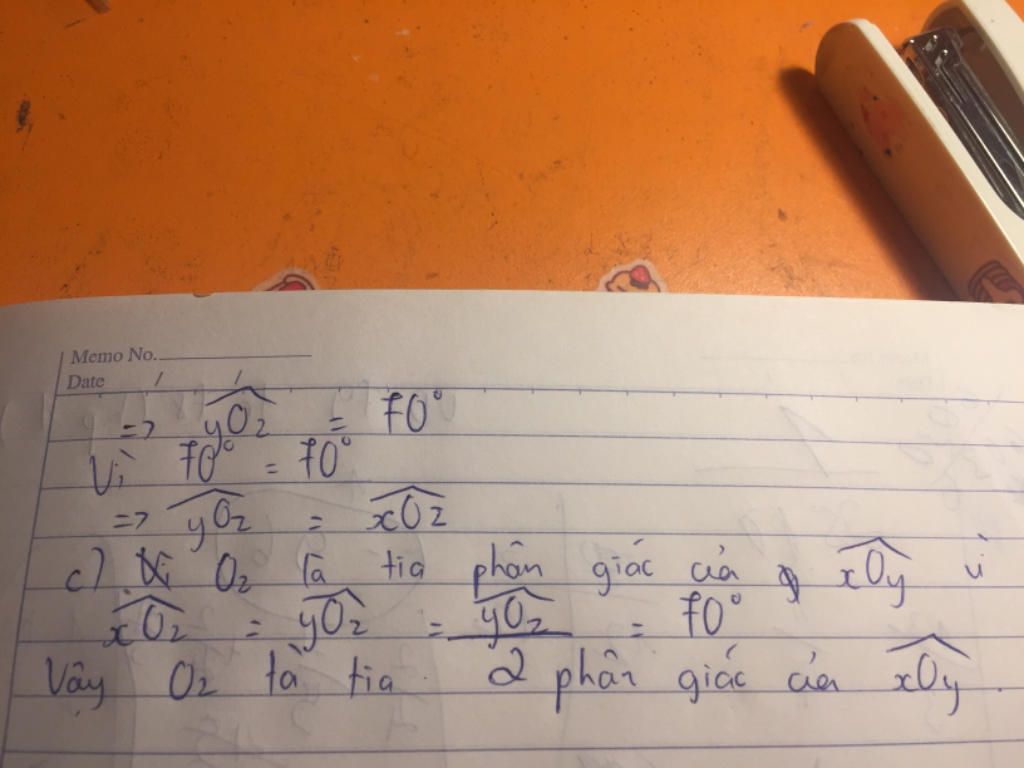 Memo No.
Date / /
=> yOz = 70°
Vì 70° = 70°
=> yOz = xOz
c) Oz là tia phân giác của xOy vì
xOz = yOz = yOz/2 = 70°
Vậy Oz là tia phân giác của xOy.